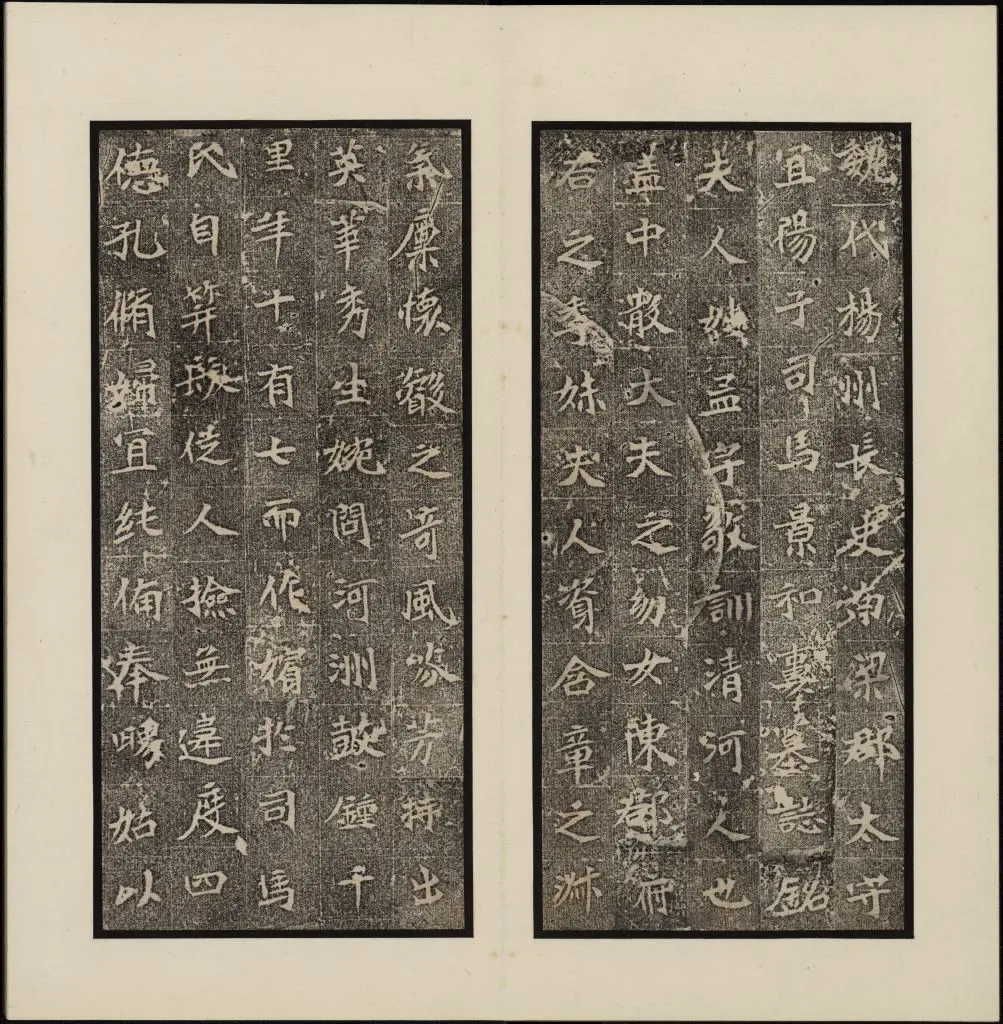 魏代楊州長史南梁郡太守
宜陽子司馬景和妻墓誌銘
夫人姓孟字敬訓清河人也
蓋中散大夫之幼女陳郡府
君之季妹夫人資含章之淑
氣稟懷叡之奇風芳特出
英華秀生婉問河洲鼓鍾千
里年十有七而作嬪於司馬
氏自笄髮從人撿無違度四
德孔脩婦宜純備奉舅姑以